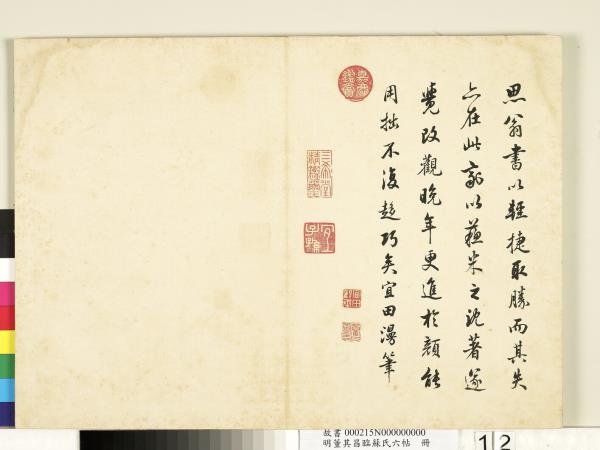 思翁書以輕捷取勝而其失
亦在此家以蘇米之沈著遂
覺改觀晚年更進於顏能
用拙不復趨巧矣宜田漫筆
嘉慶鑑賞
三希堂精鑑璽
宜子孫
故書 000215N000000000
明董其昌臨蘇氏六帖 冊
12